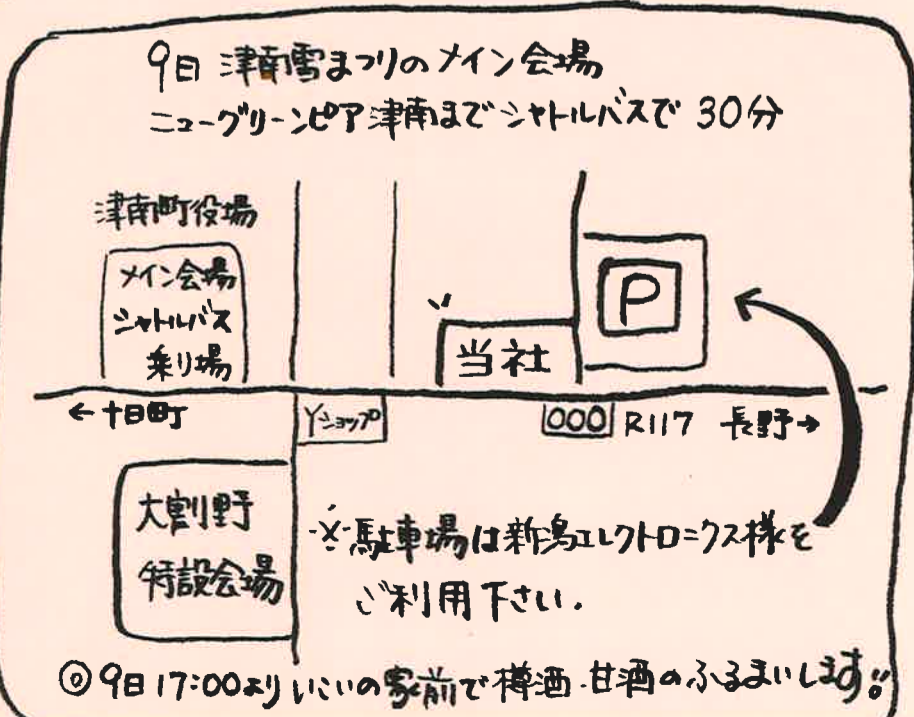 9日 津南雪まつりのメイン会場
ニューグリーンピア津南までシャトルバスで 30分
津南町役場
メイン会場
シャトルバス
乗り場
P
当社
←十日町
Yショップ
R117 長野→
大割野
特設会場
※駐車場は新潟エレクトロニクス様を
ご利用下さい.
◎9日17:00よりいこいの家前で樽酒.甘酒のふるまいします!!